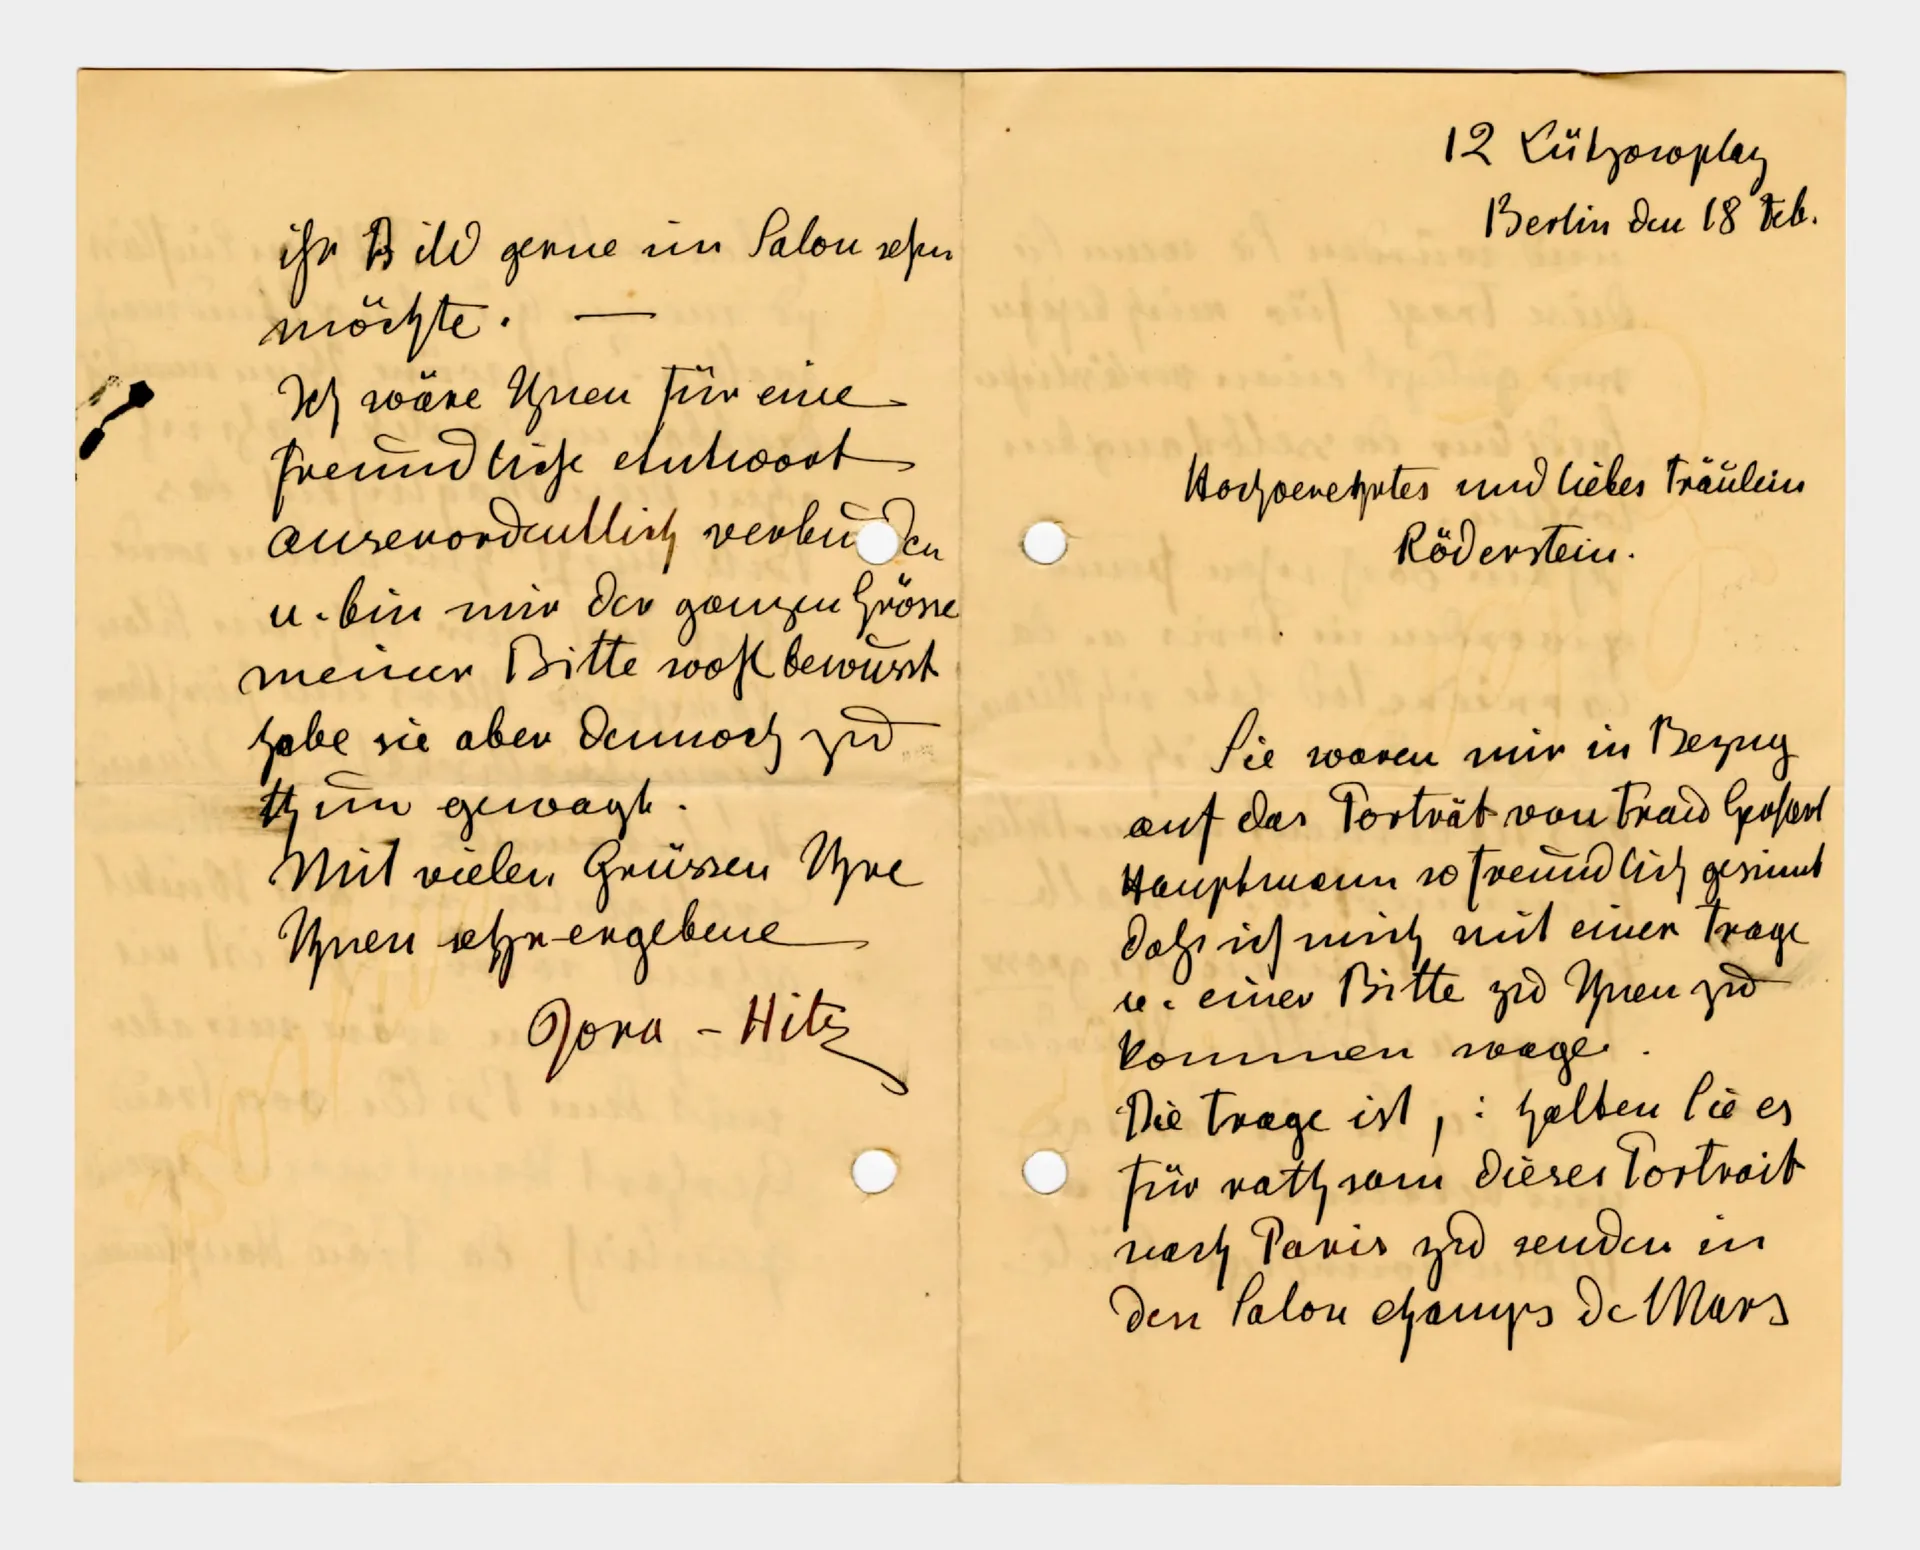 12 Lützowplatz
Berlin den 18 Feb.
Hochverehrtes und liebes Fräulein
Röderstein.
Sie waren mir in Bezug
auf das Porträt von Frau Gerhart
Hauptmann so freundlich gesinnt
dahs ich mich mit einer Frage
u. einer Bitte zu Ihnen zu
kommen wage.
Die Frage ist, : halten Sie es
für rathsam dieses Portrait
nach Paris zu senden in
den Salon champs de Mars
ihr Bild gerne im Salon sehen
möchte. —
Ich wäre Ihnen für eine
freundliche Antwort
auserordentlich verbunden
u. bin mir der ganzen Grösse
meiner Bitte wohl bewusst
habe sie aber dennoch zu
thun gewagt.
Mit vielen Grüssen Ihre
Ihnen sehr ergebene
Dora - Hitz